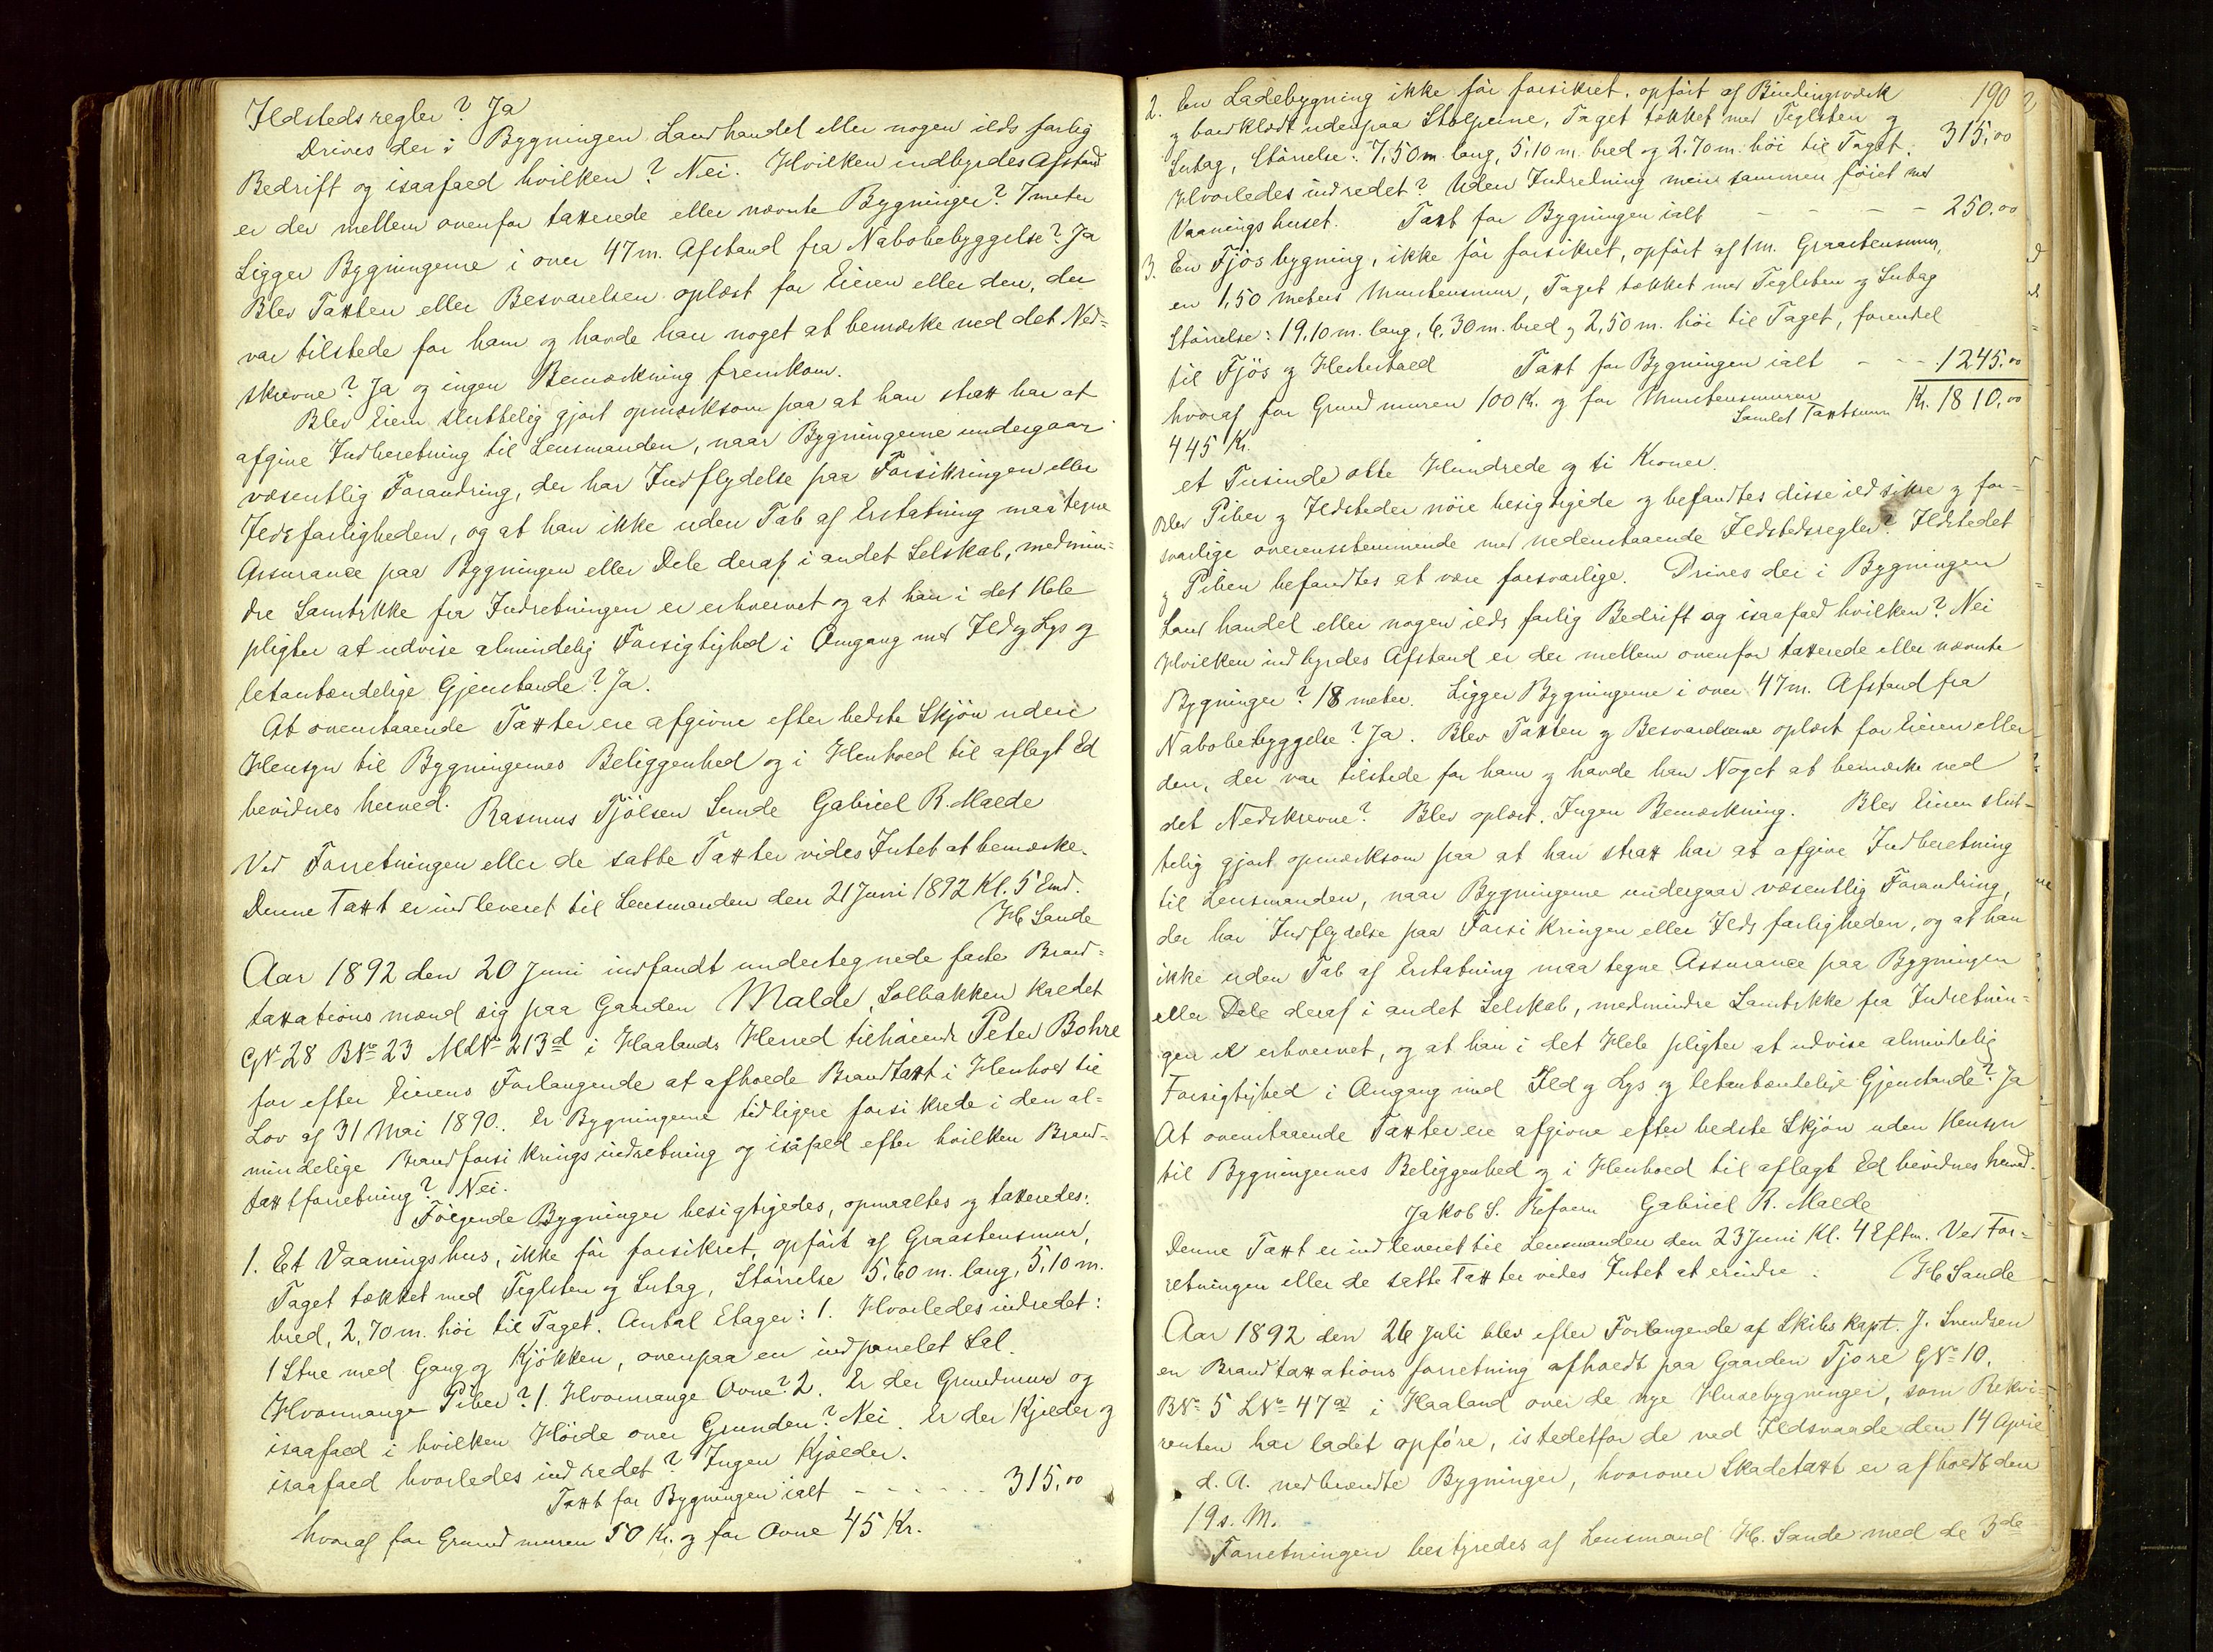 Ildstedsregler? Ja
Drives der i Bygningen Landhandel eller nogen ilds farlig
Bedrift og isaafaed hvilken? Nei. Hvilken indbyrdes Afstand
er der mellem ovenfor taxerede eller nævnte Bygninger? 7 meter
Ligger Bygningerne i over 47 m. Afstand fra Nabobebyggelse? Ja
Blev Taxten eller Besvarelsen oplæst for Eieren eller den, der
var tilstede for ham og havde han noget at bemærke ved det Ned=
skrevne? Ja og ingen Bemærkning fremkom.
Blev Eieren sluttelig gjort opmærksom paa at han strax har at
afgive Indberetning til Lensmanden, naar Bygningerne undergaar
væsentlig Forandring, der har Indflydelse paa Forsikringen eller
Ildsfarligheden, og at han ikke uden Tab af Erstatning maa tegne
Assurance paa Bygningen eller Dele deraf i andet Selskab, medmin=
dre Samtykke fra Indretningen er erhvervet og at han i det Hele
pligter at udvise almindelig Forsigtighed i Omgang med Ild og Lys og
letantændelige Gjenstande? Ja.
At ovenstaaende Taxter ere afgivne efter bedste Skjön uden
Hensyn til Bygningernes Beliggenhed og i Henhold til aflagt Ed
bevidnes herved. Rasmus Tjölsen Sunde Gabriel R. Malde
Ved Forretningen eller de satte Taxter vides Intet at bemærke.
Denne Taxt er indleveret til Lensmanden den 21 Juni 1892 Kl. 5 Emd.
H Sande
Aar 1892 den 20 Juni indfandt undertegnede faste Brand=
taxationsmænd sig paa Gaarden Malde, Solbakken kaldet
GN° 28 BN° 23 MLN° 213d i Haalands Herred tilhörende Peter Bohre
for efter Eierens Forlangende at afholde Brandtaxt i Henhold til
Lov af 31 Mai 1890. Er Bygningerne tidligere forsikrede i den al=
mindelige Brandforsikringsindretning og isåfald efter hvilken Brand=
taxtforretning? Nei.
Fölgende Bygninger besigtigedes, opmaaltes og taxeredes:
1. Et Vaaningshus, ikke för forsikret, opfört af Graastensmur,
Taget tækket med Teglsten og Sutag, Störrelse 5,60 m. lang, 5,10 m.
bred, 2,70 m. höi til Taget. Antal Etager: 1. Hvorledes indredet:
1 Stue med Gang og Kjökken, ovenpaa en indpanelet Sal.
Hvormange Piber? 1. Hvormange Ovne? 2. Er der Grundmur og
isaafaed i hvilken Höide over Grunden? Nei. Er der Kjelder og
isaafaed hvorledes indredet? Ingen Kjælder.
Taxt for Bygningen ialt - - - - - - 315,00
hvoraf for Grundmuren 50 Kr. og for Ovne 45 Kr.
190
2. En Ladebygning ikke för forsikret, opfört af Bindingsværk
og bordklædt udenpaa Stolperne, Taget tækket med Teglsten og
Sutag, Störrelse: 7,50 m. lang, 5,10 m. bred og 2.70 m. höi til Taget. 315,00
Hvorledes indredet? Uden Indretning men sammen föiet med
Vaaningshuset. Taxt for Bygningen ialt - - - - 250.00
3. En Fjösbygning, ikke för forsikret, opfört af 1 m. Graastensmur,
en 1,50 meters Murstensmur, Taget tækket med Teglsten og Sutag
Störrelse: 19,10 m. lang, 6,30 m. bred og 2,50 m. höi til Taget, forendel
til Fjös og Hestestald Taxt for Bygningen ialt - - - 1245.00
hvoraf for Grundmuren 100 Kr. og for Murstensmuren
Samlet Taxtsum Kr. 1810,00
445 Kr.
et Tusinde otte Hundrede og ti Kroner.
Blev Piber og Ildsteder nöie besigtigede og befandtes disse ildsikre og for=
svarlige overensstemmende med nedenstaaende Ildstedsregler? Ildstedet
og Piben befandtes at være forsvarlige. Drives der i Bygningen
Landhandel eller nogen ilds farlig Bedrift og isaafaed hvilken? Nei
Hvilken indbyrdes Afstand er der mellem ovenfor taxerede eller nævnte
Bygninger? 18 meter. Ligger Bygningerne i over 47 m. Afstand fra
Nabobebyggelse? Ja. Blev Taxten og Besvarelserne oplæst for Eieren eller
den, der var tilstede for ham og havde han Noget at bemærke ved
det Nedskrevne? Blev oplæst. Ingen Bemærkning. Blev Eieren slut=
telig gjort opmærksom paa at han strax har at afgive Indberetning
til Lensmanden, naar Bygningerne undergaar væsentlig Forandring,
der har Indflydelse paa Forsikringen eller Ilds farligheden, og at han
ikke uden Tab af Erstatning maa tegne Assurance paa Bygningen
eller Dele deraf i andet Selskab, medmindre Samtykke fra Indretnin=
gen er erhvervet, og at han i det Hele pligter at udvise almindelig
Forsigtighed i Omgang med Ild og Lys og letantændelige Gjenstande? Ja
At ovenstaaende Taxter ere afgivne efter bedste Skjön uden Hensyn
til Bygningernes Beliggenhed og i Henhold til aflagt Ed bevidnes herved.
Jakob S. Gabriel R. Malde
Denne Taxt er indleveret til Lensmanden den 23 Juni Kl. 4 Eftm. Ved For=
retningen eller de satte Taxter vides Intet at erindre. H Sande
Aar 1892 den 26 Juli blev efter Forlangende af Skibskapt. J. Svendsen
en Brandtaxationsforretning afholdt paa Gaarden Tjora GN° 10,
BN° 5 LN° 47a i Haaland over de nye Husebygninger, som Rekvi=
renten har ladet opföre, istedetfor de ved Ildsvaade den 14 April
d. A. nedbrændte Bygninger, hvorover Skadetaxt er afholdt den
19 s. M.
Forretningen bestyredes af Lensmand H. Sande med de 3de